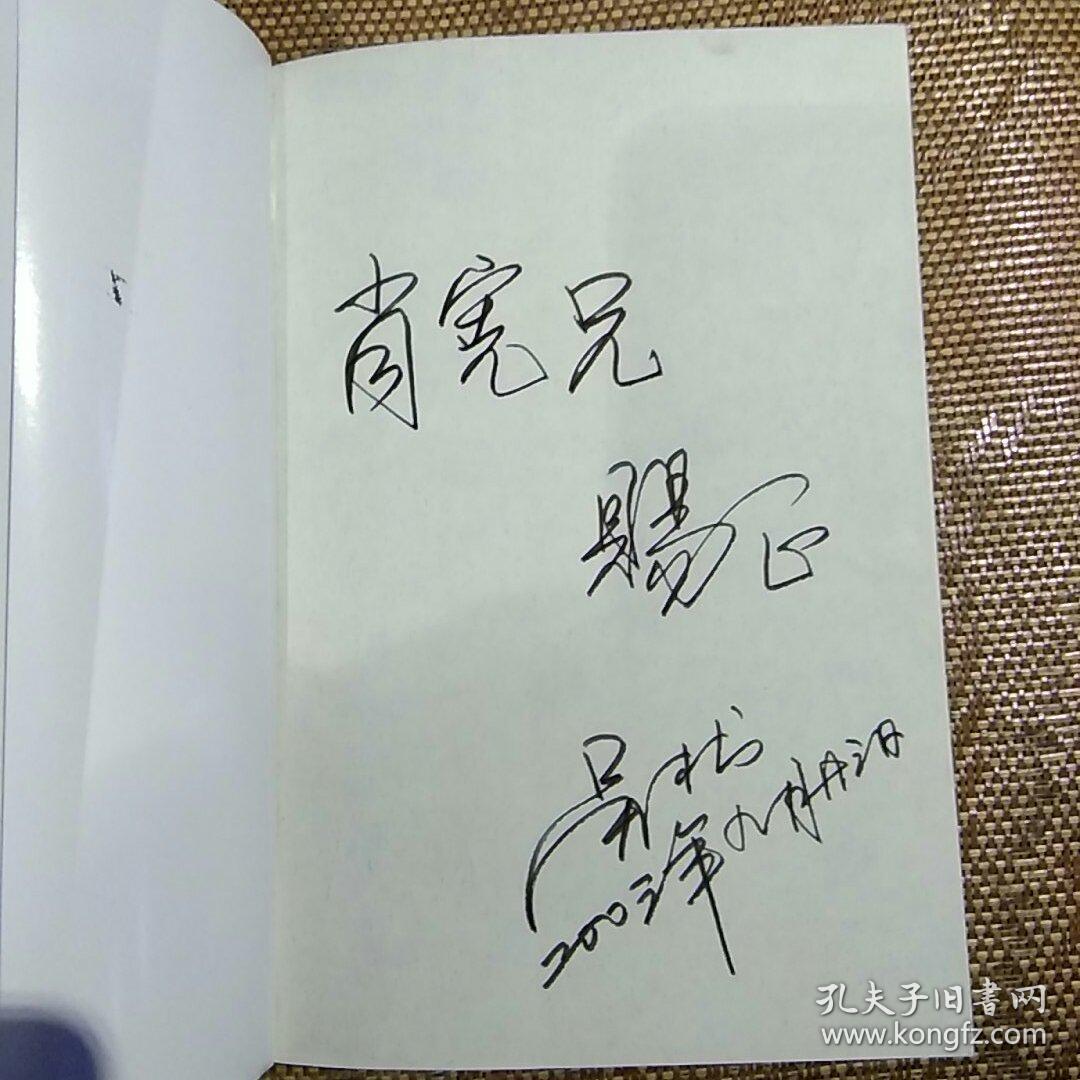 肖宪兄
賜正
吴树
200三年九月廿三日
孔夫子旧書网
www.kongfz.com